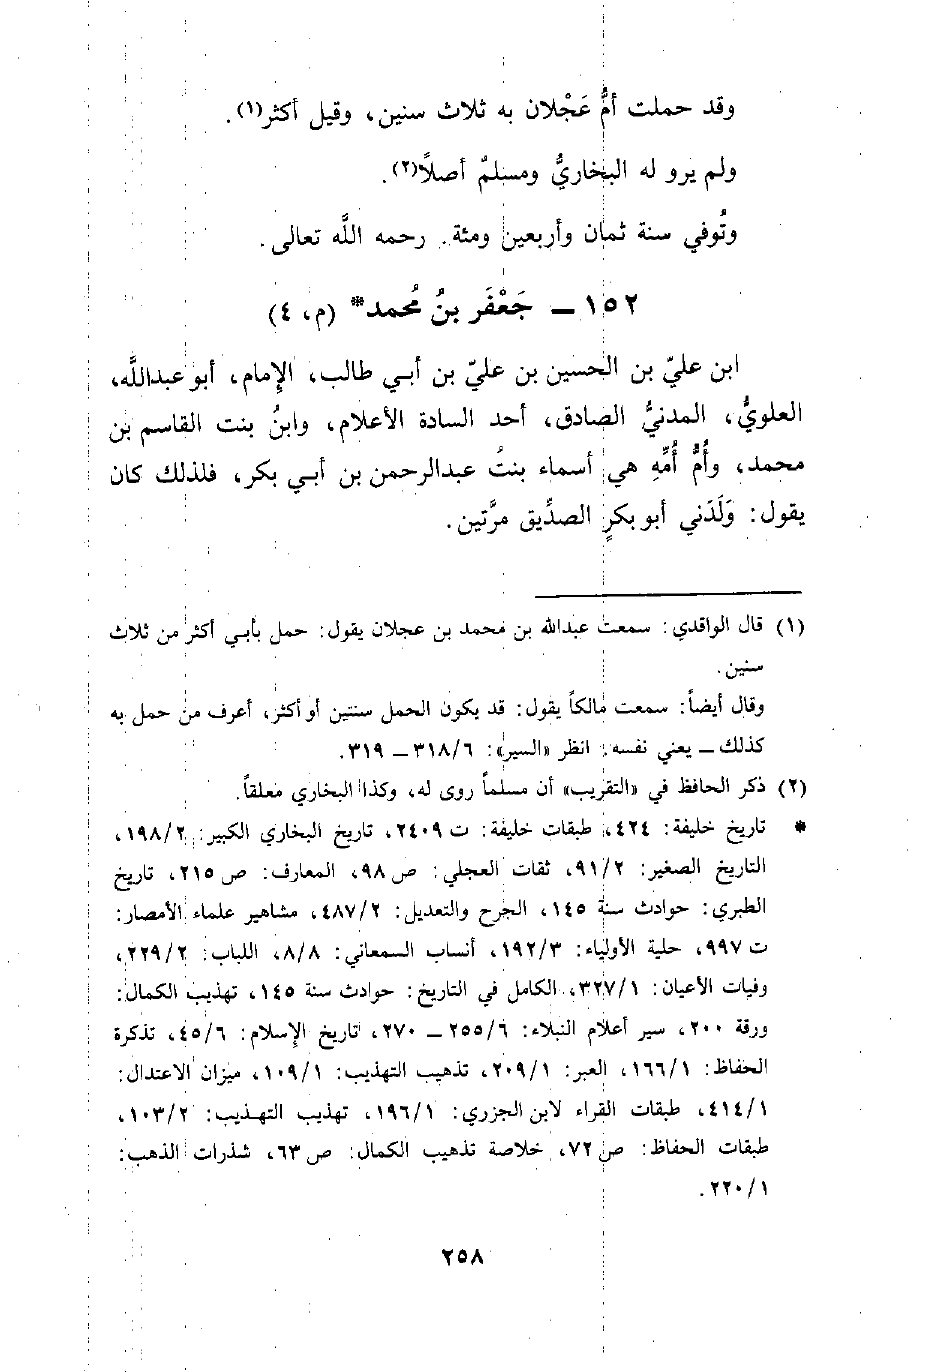 وقد حملت أمُّ عَجْلان به ثلاث سنين، وقيل أكثر(١).
ولم يرو له البخاريُّ ومسلمٌ أصلًا(٢).
وتُوفي سنة ثمان وأربعين ومئة. رحمه اللَّه تعالى.
١٥٢ ــ جَعْفَر بنُ مُحمد* (م، ٤)
ابن عليّ بن الحسين بن عليّ بن أبي طالب، الإمام، أبو عبداللَّه،
العلويُّ، المدنيُّ الصادق، أحد السادة الأعلام، وابنُ بنت القاسم بن
محمد، وأُمُّ أُمِّهِ هي أسماء بنتُ عبدالرحمن بن أبي بكر، فلذلك كان
يقول: وَلَدَني أبو بكرٍ الصدِّيق مرَّتين.
(١) قال الواقدي: سمعت عبدالله بن محمد بن عجلان يقول: حمل بأبي أكثر من ثلاث
سنين.
وقال أيضاً: سمعت مالكاً يقول: قد يكون الحمل سنتين أو أكثر، أعرف من حمل به
كذلك ــ يعني نفسه. انظر «السير»: ٣١٨/٦ ــ ٣١٩.
(٢) ذكر الحافظ في «التقريب» أن مسلماً روى له، وكذا البخاري معلقاً.
* تاريخ خليفة: ٤٢٤، طبقات خليفة: ت ٢٤٠٩، تاريخ البخاري الكبير: ١٩٨/٢،
التاريخ الصغير: ٩١/٢، ثقات العجلي: ص ٩٨، المعارف: ص ٢١٥، تاريخ
الطبري: حوادث سنة ١٤٥، الجرح والتعديل: ٤٨٧/٢، مشاهير علماء الأمصار:
ت ٩٩٧، حلية الأولياء: ١٩٢/٣، أنساب السمعاني: ٨/٨، اللباب: ٢٢٩/٢،
وفيات الأعيان: ٣٢٧/١، الكامل في التاريخ: حوادث سنة ١٤٥، تهذيب الكمال:
ورقة ٢٠٠، سير أعلام النبلاء: ٢٥٥/٦ ــ ٢٧٠، تاريخ الإسلام: ٤٥/٦، تذكرة
الحفاظ: ١٦٦/١، العبر: ٢٠٩/١، تذهيب التهذيب: ١٠٩/١، ميزان الاعتدال:
٤١٤/١، طبقات القراء لابن الجزري: ١٩٦/١، تهذيب التهذيب: ١٠٣/٢،
طبقات الحفاظ: ص ٧٢، خلاصة تذهيب الكمال: ص ٦٣، شذرات الذهب:
٢٢٠/١.
٢٥٨